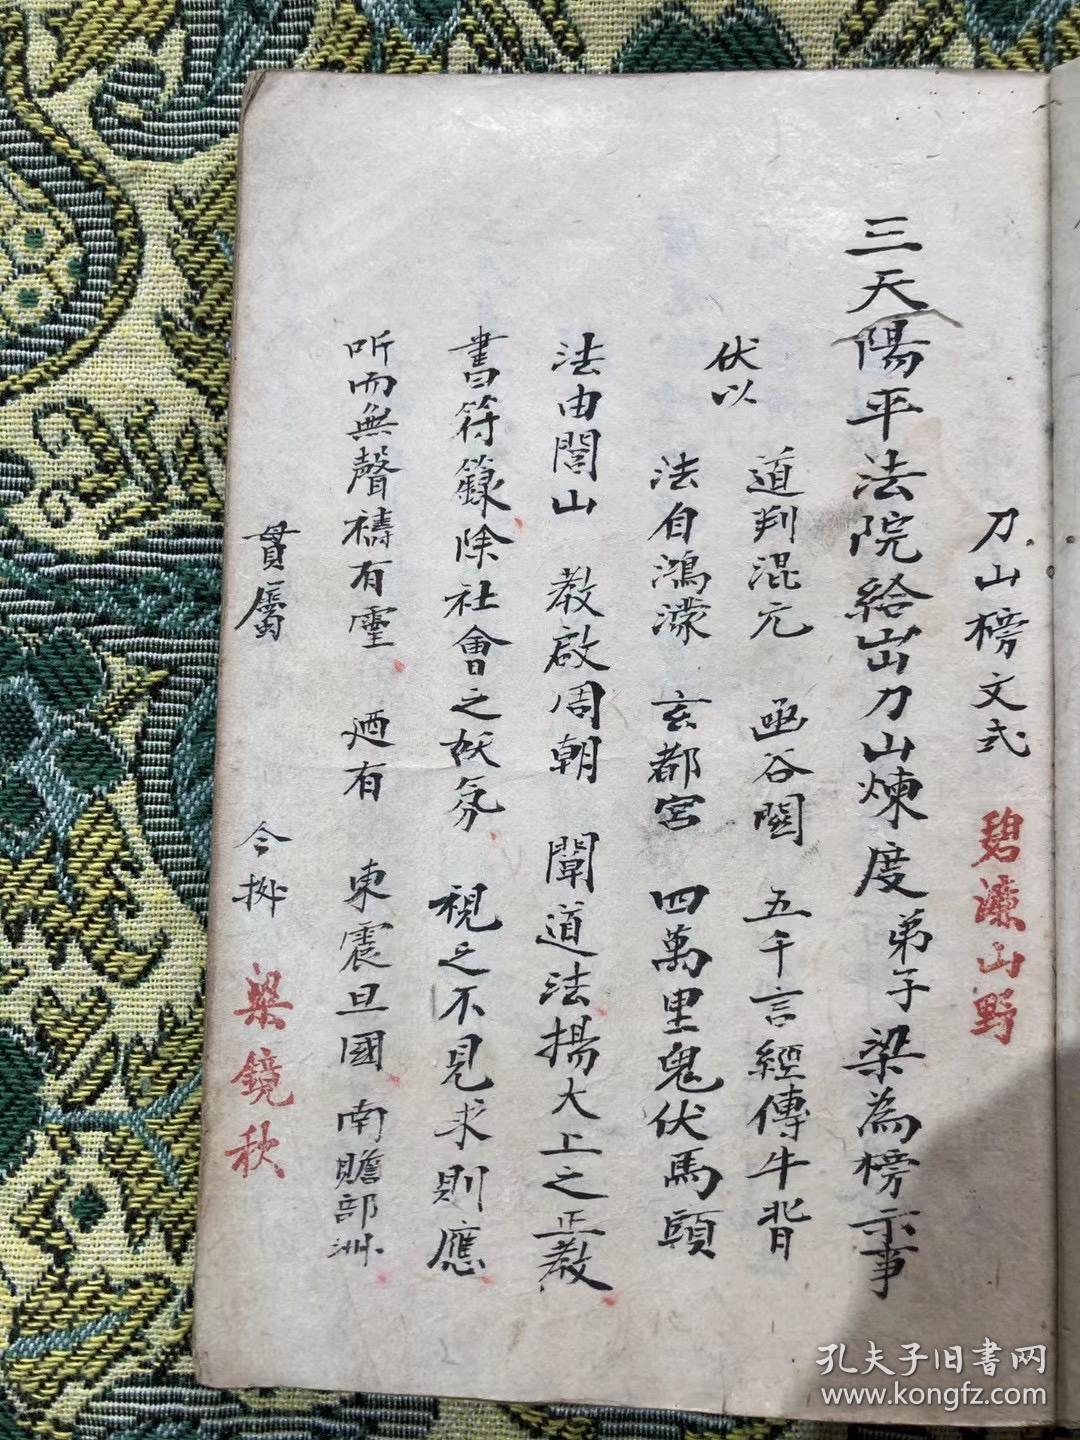 刀山榜文式 碧濂山野
三天陽平法院給出刀山煉度弟子梁為榜示事
伏以 道判混元 函谷関 五千言經傳牛背
法自鴻濛 玄都宮 四萬里鬼伏馬頭
法由閭山 教啟周朝 闡道法揚大上之正教
書符籙除社會之妖氛 視之不見求則應
听而無聲禱有靈 廼有 東震旦國 南贍部洲
貫屬 今 梁鏡秋
孔夫子旧書网
www.kongfz.com